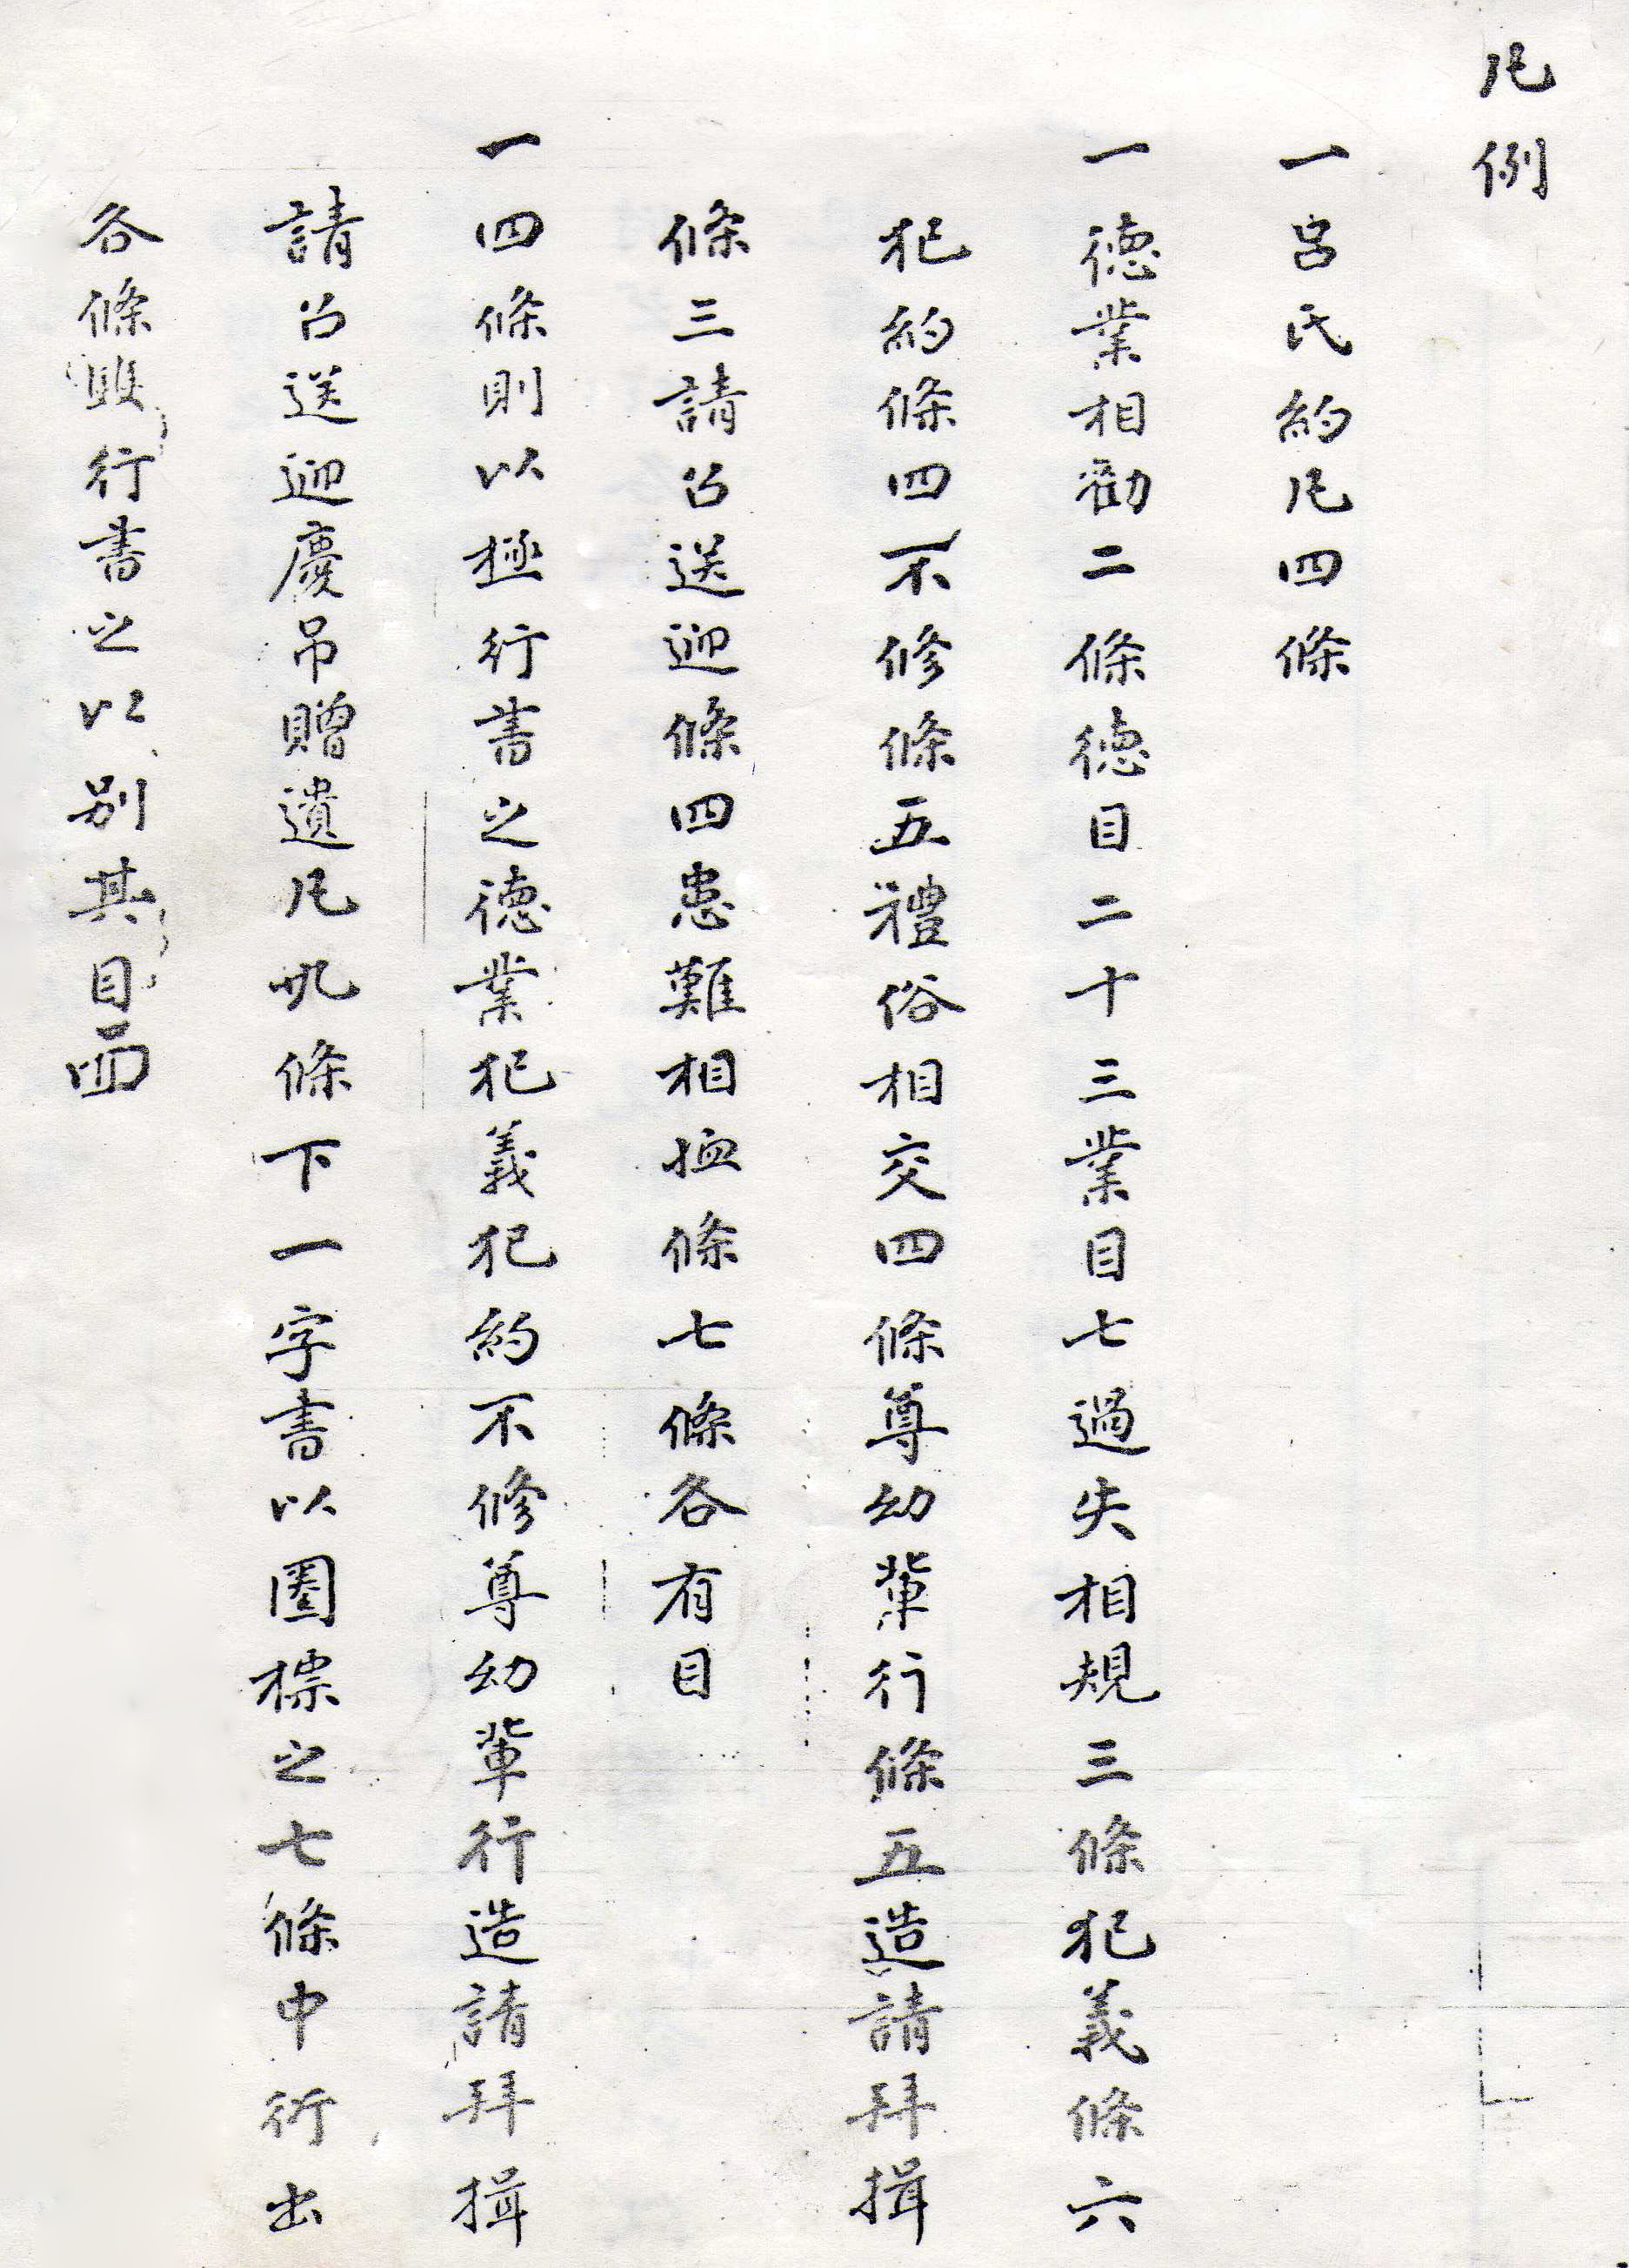 凡例
一呂氏約凡四條
一德業相勸二條德目二十三業目七過失相規三條犯義條六
犯約條四不修條五禮俗相交四條尊幼輩行條五造請拜揖
條三請召送迎條四患難相恤條七條各有目
一四條則以極行書之德業犯義犯約不修尊幼輩行造請拜揖
請召送迎慶吊贈遺凡九條下一字書以圈標之七條中衍出
各條雙行書之以別其目